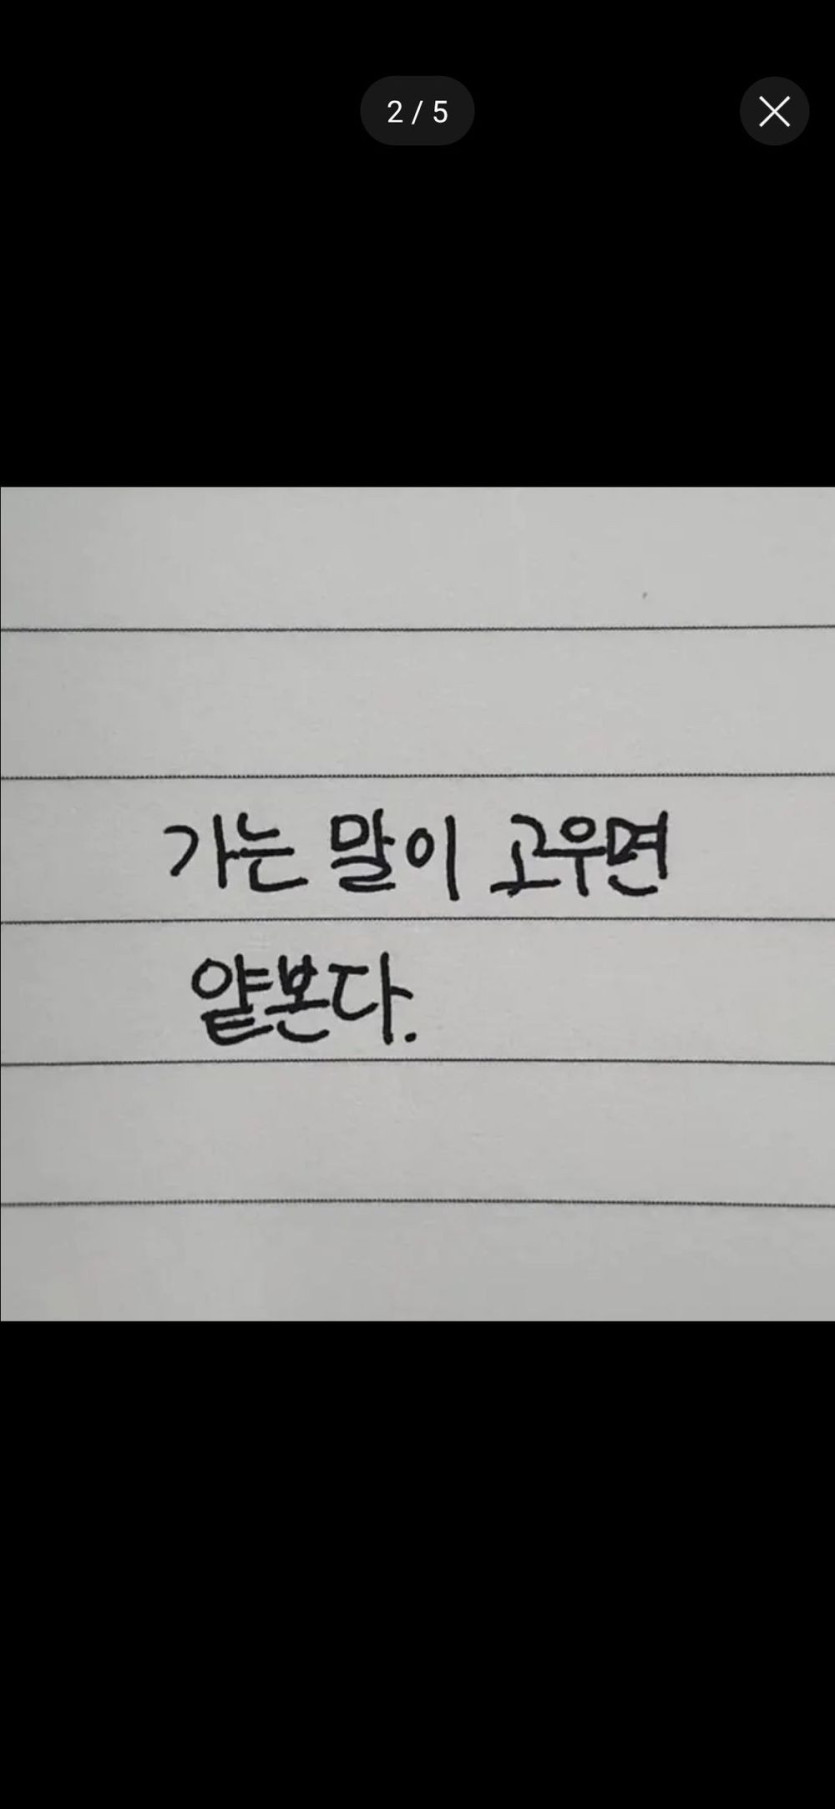 2 / 5
가는 말이 고우면
얕본다.